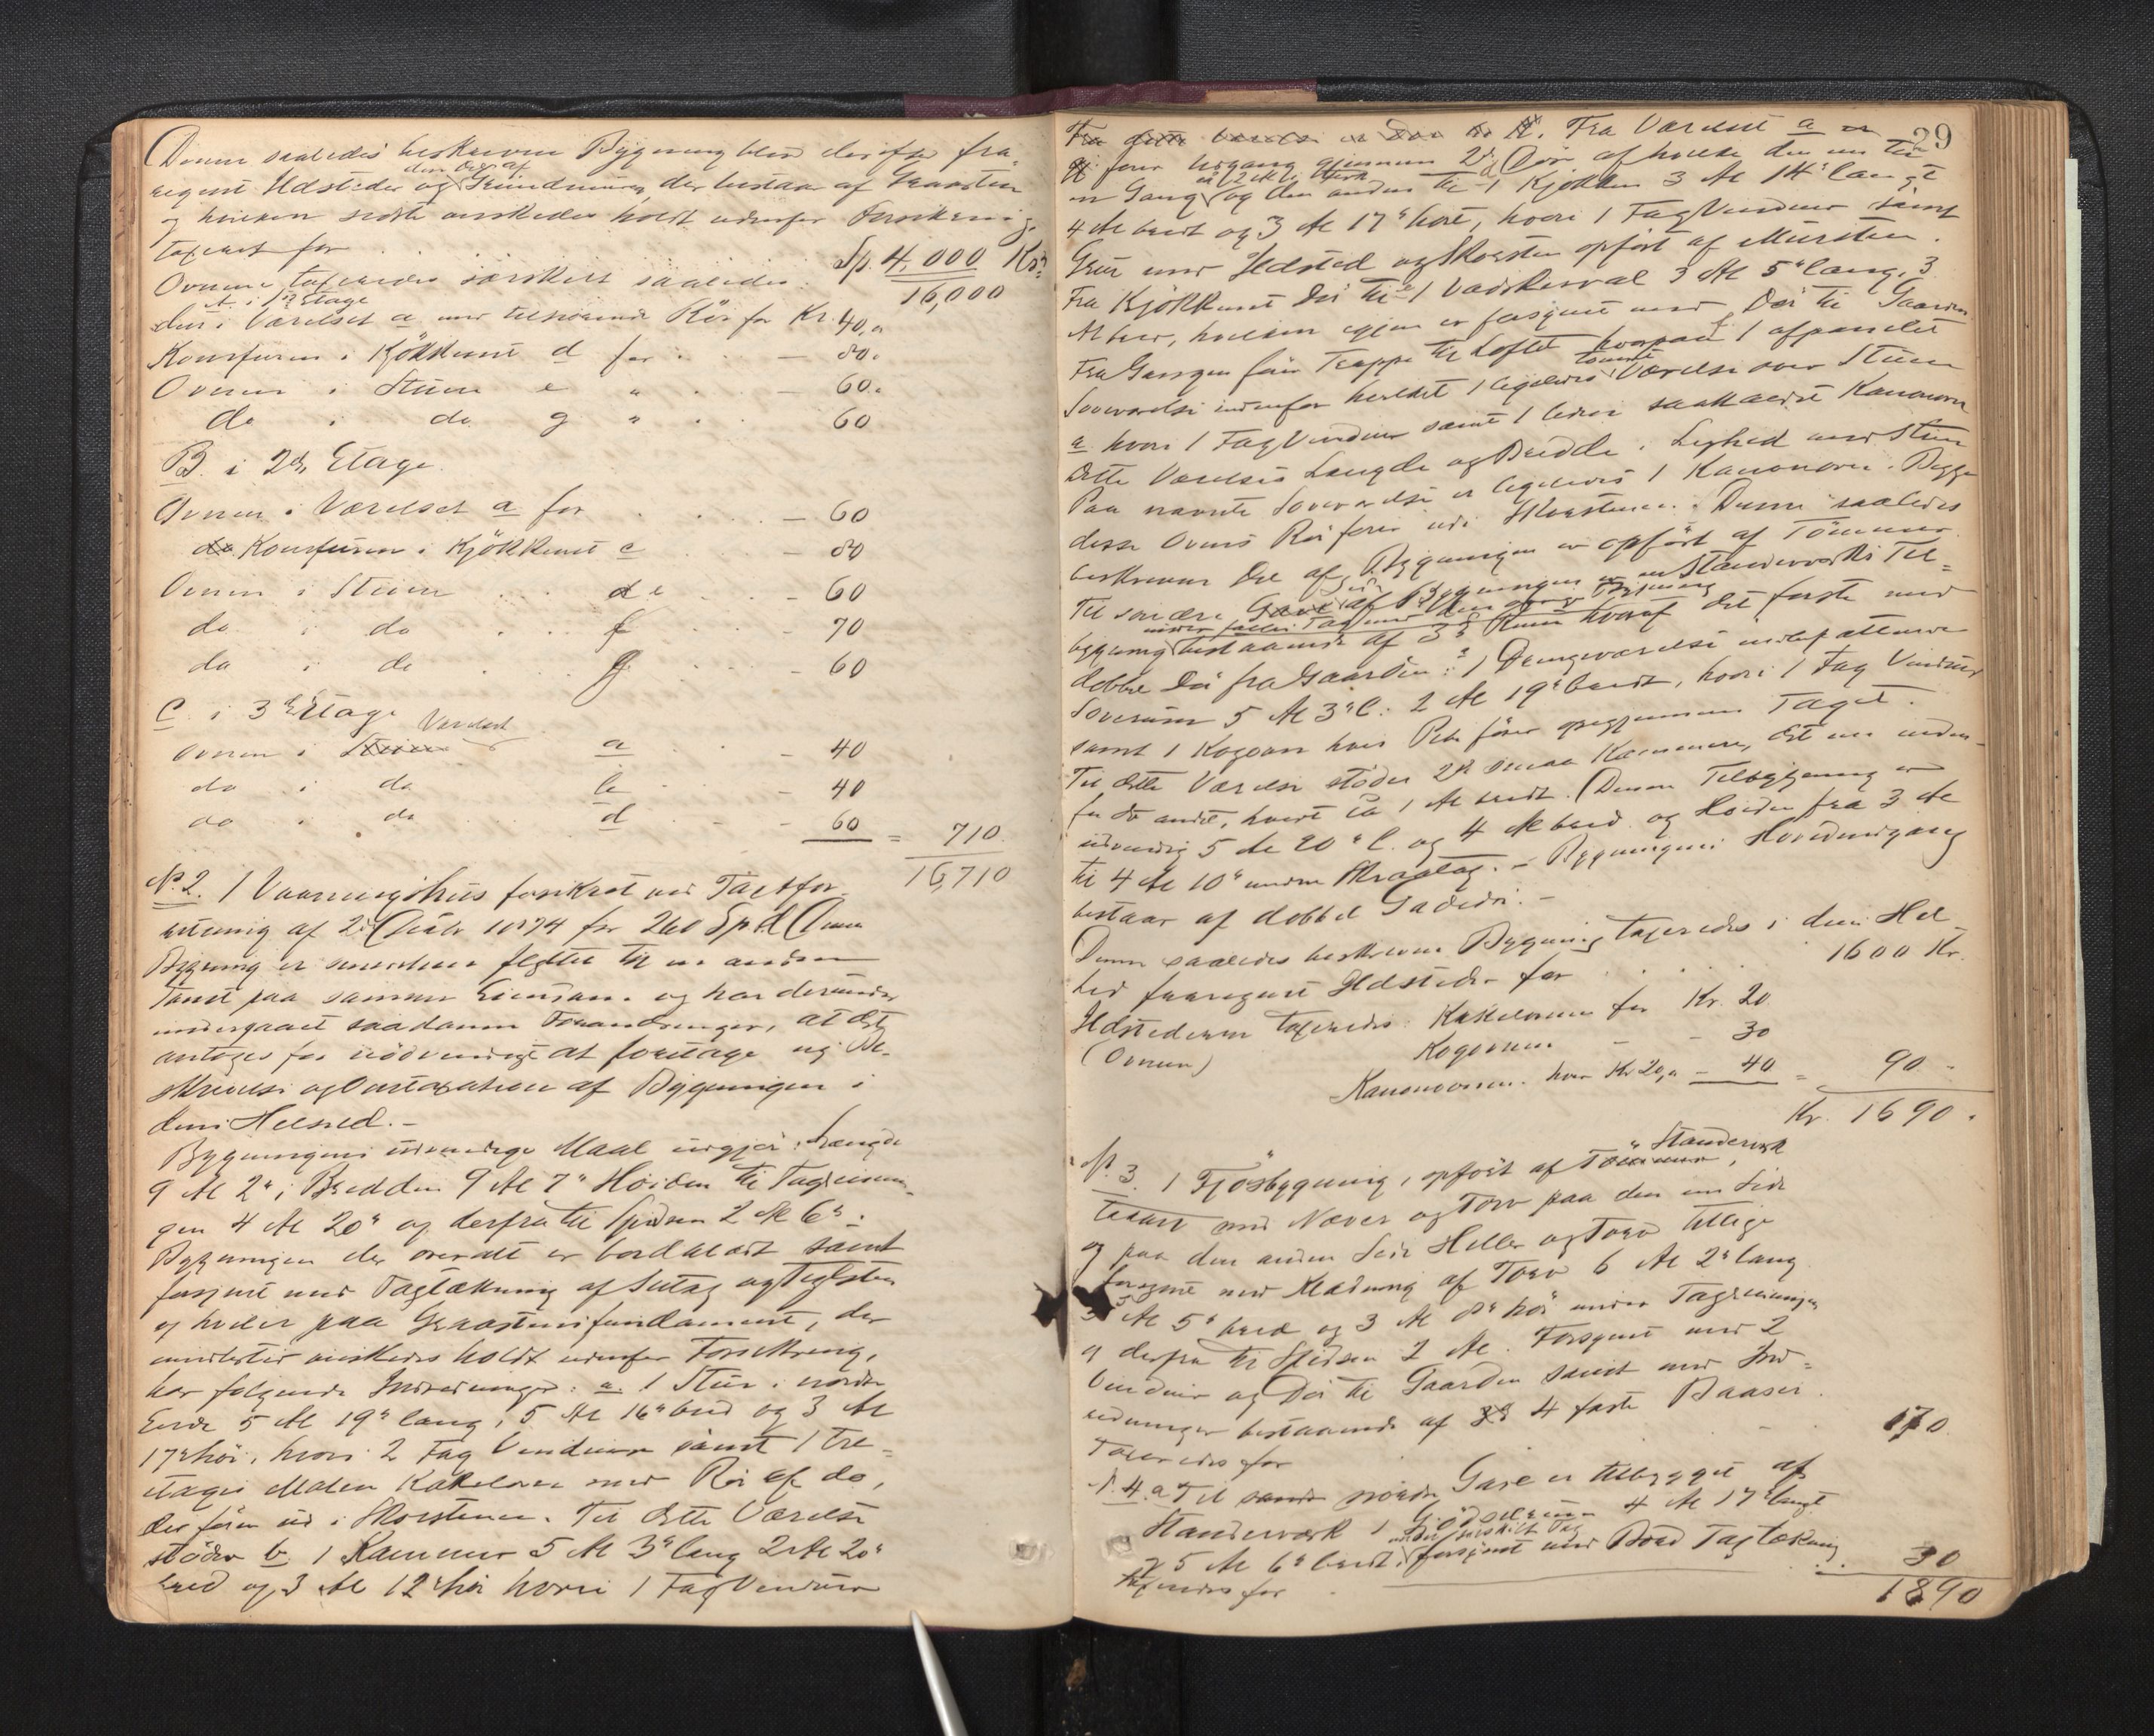 Denne saaledes beskrevne Bygning blev derefter fra-
regnet Ildsteder og den Del af Grundmuren, der bestaar af Graasten
og hvilken sidste ønskedes holdt udenfor Forsikring,
taxeret for . . . Sp. 4,000 Kr.
16,000
Ovnene taxeredes særskilt saaledes:
A i 1ste Etage
den i Værelset a med tilhørende Rør for Kr. 40,"
Komfuren i Kjøkkenet d for . . — 80.
Ovnen i Stuen e " . . — 60.
do i do g " . . 60
B. i 2den Etage.
Ovnen i Værelset a for . . . — 60
do Komfuren i Kjøkkenet c — 80
Ovnen i Stuen . . d e . . — 60
do i do . . f . . — 70
do i do . . g . . — 60
C. i 3die Etage
Ovnen i Stuen Værelset a . . — 40
do i do b . . — 40
do i do d . . — 60 = 710.
16,710
No. 2. 1 Vaaningshus forsikret ved Taxtfor-
retning af 2 1874 for 260 Spd. Denne
Bygning er senere flyttet til en anden
Tomt paa samme Eiendom og har derunder
undergaaet saadanne Forandringer, at det
antoges for nødvendigt at foretage ny Be-
skrivelse og Omtaxation af Bygningen i
dens Helhed. —
Bygningens udvendige Maal udgjør i Længde
9 Al 2", i Bredden 9 Al 7" Høiden til Tagrennin-
gen 4 Al 20" og derfra til Spidsen 2 Al 6".
Bygningen der overalt er bordklædt samt
forsynet med Tagtækning af Sutag og Teglsten
og hviler paa Graastensfundament, der
imidlertid ønskedes holdt udenfor Forsikring,
har følgende Indredninger: a. 1 Stue i nordre
Ende 5 Al 19" lang, 5 Al 16" bred og 3 Al
17" høi, hvori 2 Fag Vinduer samt 1 tre-
etages Kakelovn med Rør af do,
der fører ud i Skorstenen. Til dette Værelse
støder b. 1 Kammer 5 Al 3" lang 2 Al 20"
bred og 3 Al 12" høi hvori 1 Fag Vinduer
29
Fra dette Værelse er Dør til K. Fra Værelset a er
fører Udgang gjennem 2de Døre af hvilke den ene til
en Gang og den anden til 1 Kjøkken 3 Al 14" langt
4 Al bredt og 3 Al 17" høit, hvori 1 Fag Vinduer samt
Grue med Ildsted og Skorsten opført af Mursten.
Fra Kjøkkenet Dør til 1 Vadskerval 3 Al 5" lang, 3
Al bred, hvilken igjen er forsynet med Dør til Gaarden
Fra Gangen fører Trappe til Loftet hvorpaa 1 afpanelet
Soveværelse indenfor hvilket 1 ligeledes Værelse over Stuen
a hvori 1 Fag Vinduer samt 1 liden saakaldet Kanonovn
Dette Værelses Længde og Bredde i Lighed med Stuen
Paa nævnte Soveværelse er ligeledes 1 Kanonovn. Begge
disse Ovnes Rør fører ud i Skorstenen. Denne saaledes
beskrevne Del af Bygningen er opført af Tømmer.
Til søndre Side af Bygningen er en Standerværks Til-
bygning under fælles Tag med den øvrige Bygning bestaaende af 3 Rum hvoraf det første med
dobbel Dør fra Gaarden: 1 Drengeværelse
5 Al 3" l. 2 Al 19" bredt, hvori 1 Fag Vinduer
samt 1 Kogeovn hvis Rør fører op igjennem Taget.
Til dette Værelse støder 2de smaa Kamre, det ene inden-
for det andet, hvert ca 1 Al bredt. Denne Tilbygning er
udvendig 5 Al 20" l. og 4 Al bred og Høiden fra 3 Al
til 4 Al 10" under Skraatag. — Bygningens Hovedindgang
bestaar af dobbel Gadedør. —
Denne saaledes beskrevne Bygning taxeredes i dens Hel-
hed fraregnet Ildsteder for . . . 1600 Kr.
Ildstederne taxeredes: Kakelovnen for Kr. 20
(Ovnene) Kogeovnen — — 30
Kanonovnene hver Kr 20," — 40 = 90. "
Kr. 1690.
No. 3. 1 Fjøsbygning, opført af Tømmer Standerværk,
tækket med Næver og Torv paa den ene Side
og paa den anden Side Heller og Torv tillige
forsynet med Klædning af Torv 6 Al 2" lang
5 Al 5" bred og 3 Al 8" høi under Tagrenningen
og derfra til Spidsen 2 Al. Forsynet med 2
Vinduer og Dør til Gaarden samt med Ind-
redninger bestaaende af 4 faste Baaser.
Taxeredes for — 170.
No. 4. a Til søndre nordre Gavl er tilbygget af
Standerværk 1 Gjødselrum 4 Al 17" langt
og 5 Al 6" bredt, forsynet med Bord Tagtækning
taxeredes for . . 30
1890